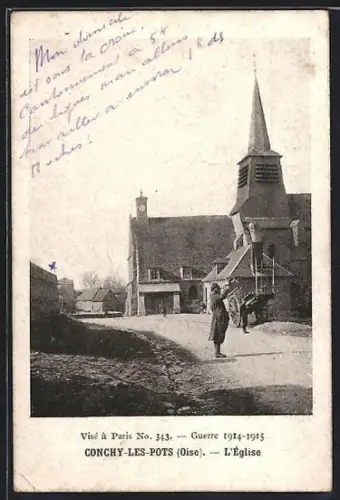 Mon domicile
est sous la croix.
Cantonnement à 5k
des lignes mais allons
travailler à environ 1k ds
Boches!
Visé à Paris No. 343. — Guerre 1914-1915
CONCHY-LES-POTS (Oise). — L'Église